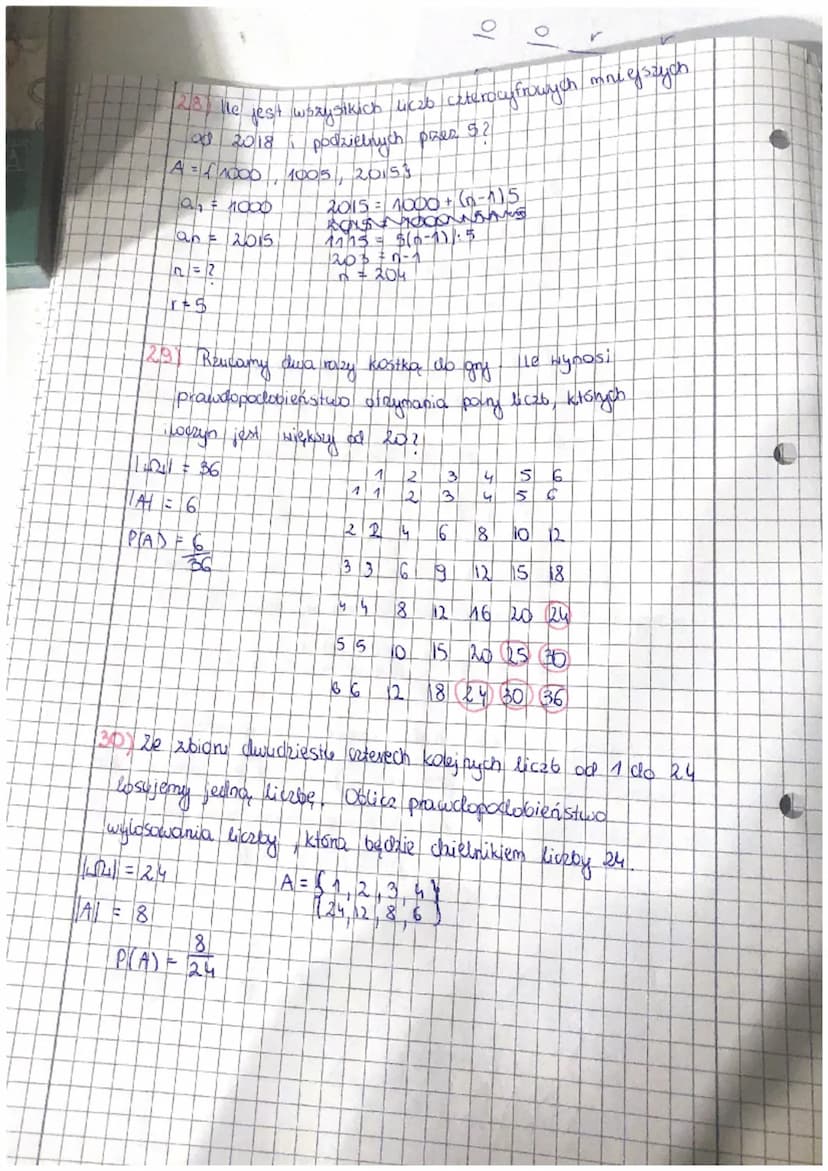 28) Ile jest wszystkich liczb czterocyfrowych mniejszych
od 2018 i podzielnych przez 5?
A = { 1000 , 1005 , 2015}
a₁ = 1000 2015 = 1000 + (n-1)5
an = 2015 1115 = 5(n-1) |:5
203 = n-1
n = ? n = 204
r = 5
29) Rzucamy dwa razy kostką do gry. Ile wynosi
prawdopodobieństwo otrzymania pary liczb, których
iloczyn jest większy od 20?
|Ω| = 36 1 2 3 4 5 6
|A| = 6 1 1 2 3 4 5 6
P(A) = 6/36 2 2 4 6 8 10 12
3 3 6 9 12 15 18
4 4 8 12 16 20 24
5 5 10 15 20 25 30
6 6 12 18 24 30 36
30) Ze zbioru dwudziestu czterech kolejnych liczb od 1 do 24
losujemy jedną liczbę. Oblicz prawdopodobieństwo
wylosowania liczby , która będzie dzielnikiem liczby 24.
|Ω| = 24 A = { 1 , 2 , 3 , 4 }
|A| = 8 {24, 12, 8, 6}
P(A) = 8/24